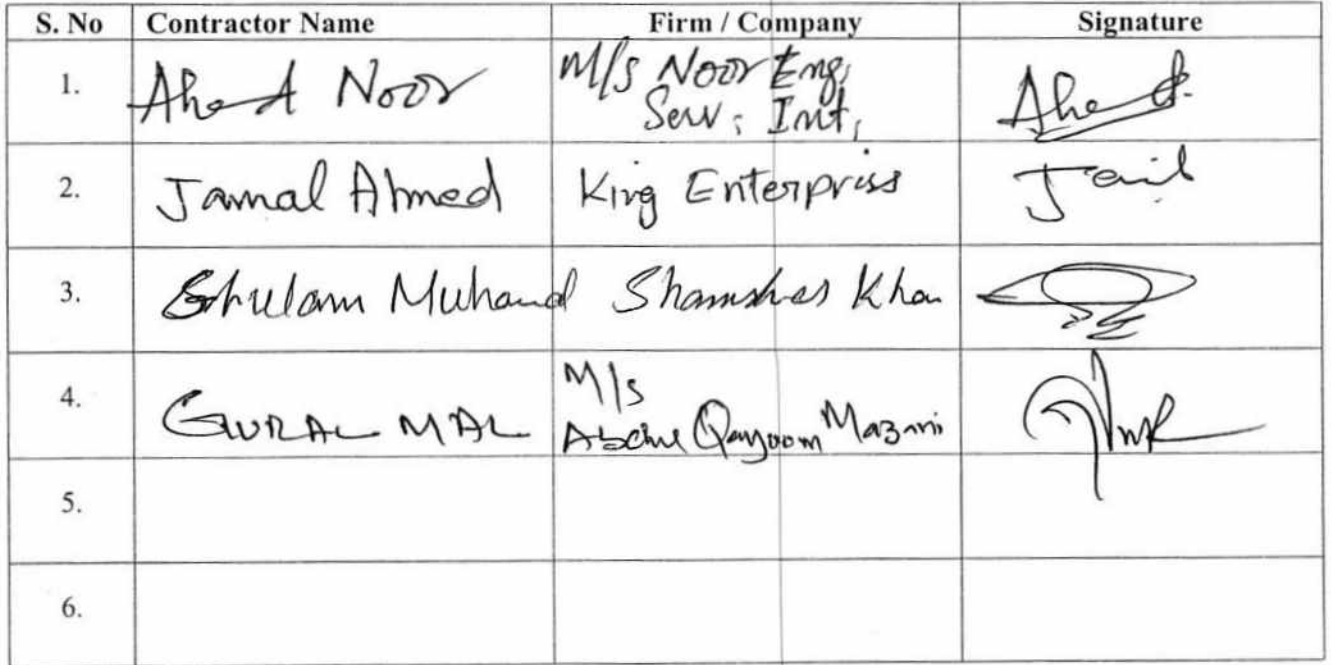 S. No Contractor Name Firm / Company Signature
1. Ahed Noor M/s Noor Eng,
Serv, Int,
2. Jamal Ahmed King Enterpriss
3. Ghulam Muhamd Shamshes Khan
4. M/s
GURAL MAL Abdul Qayoom Mazari
5.
6.